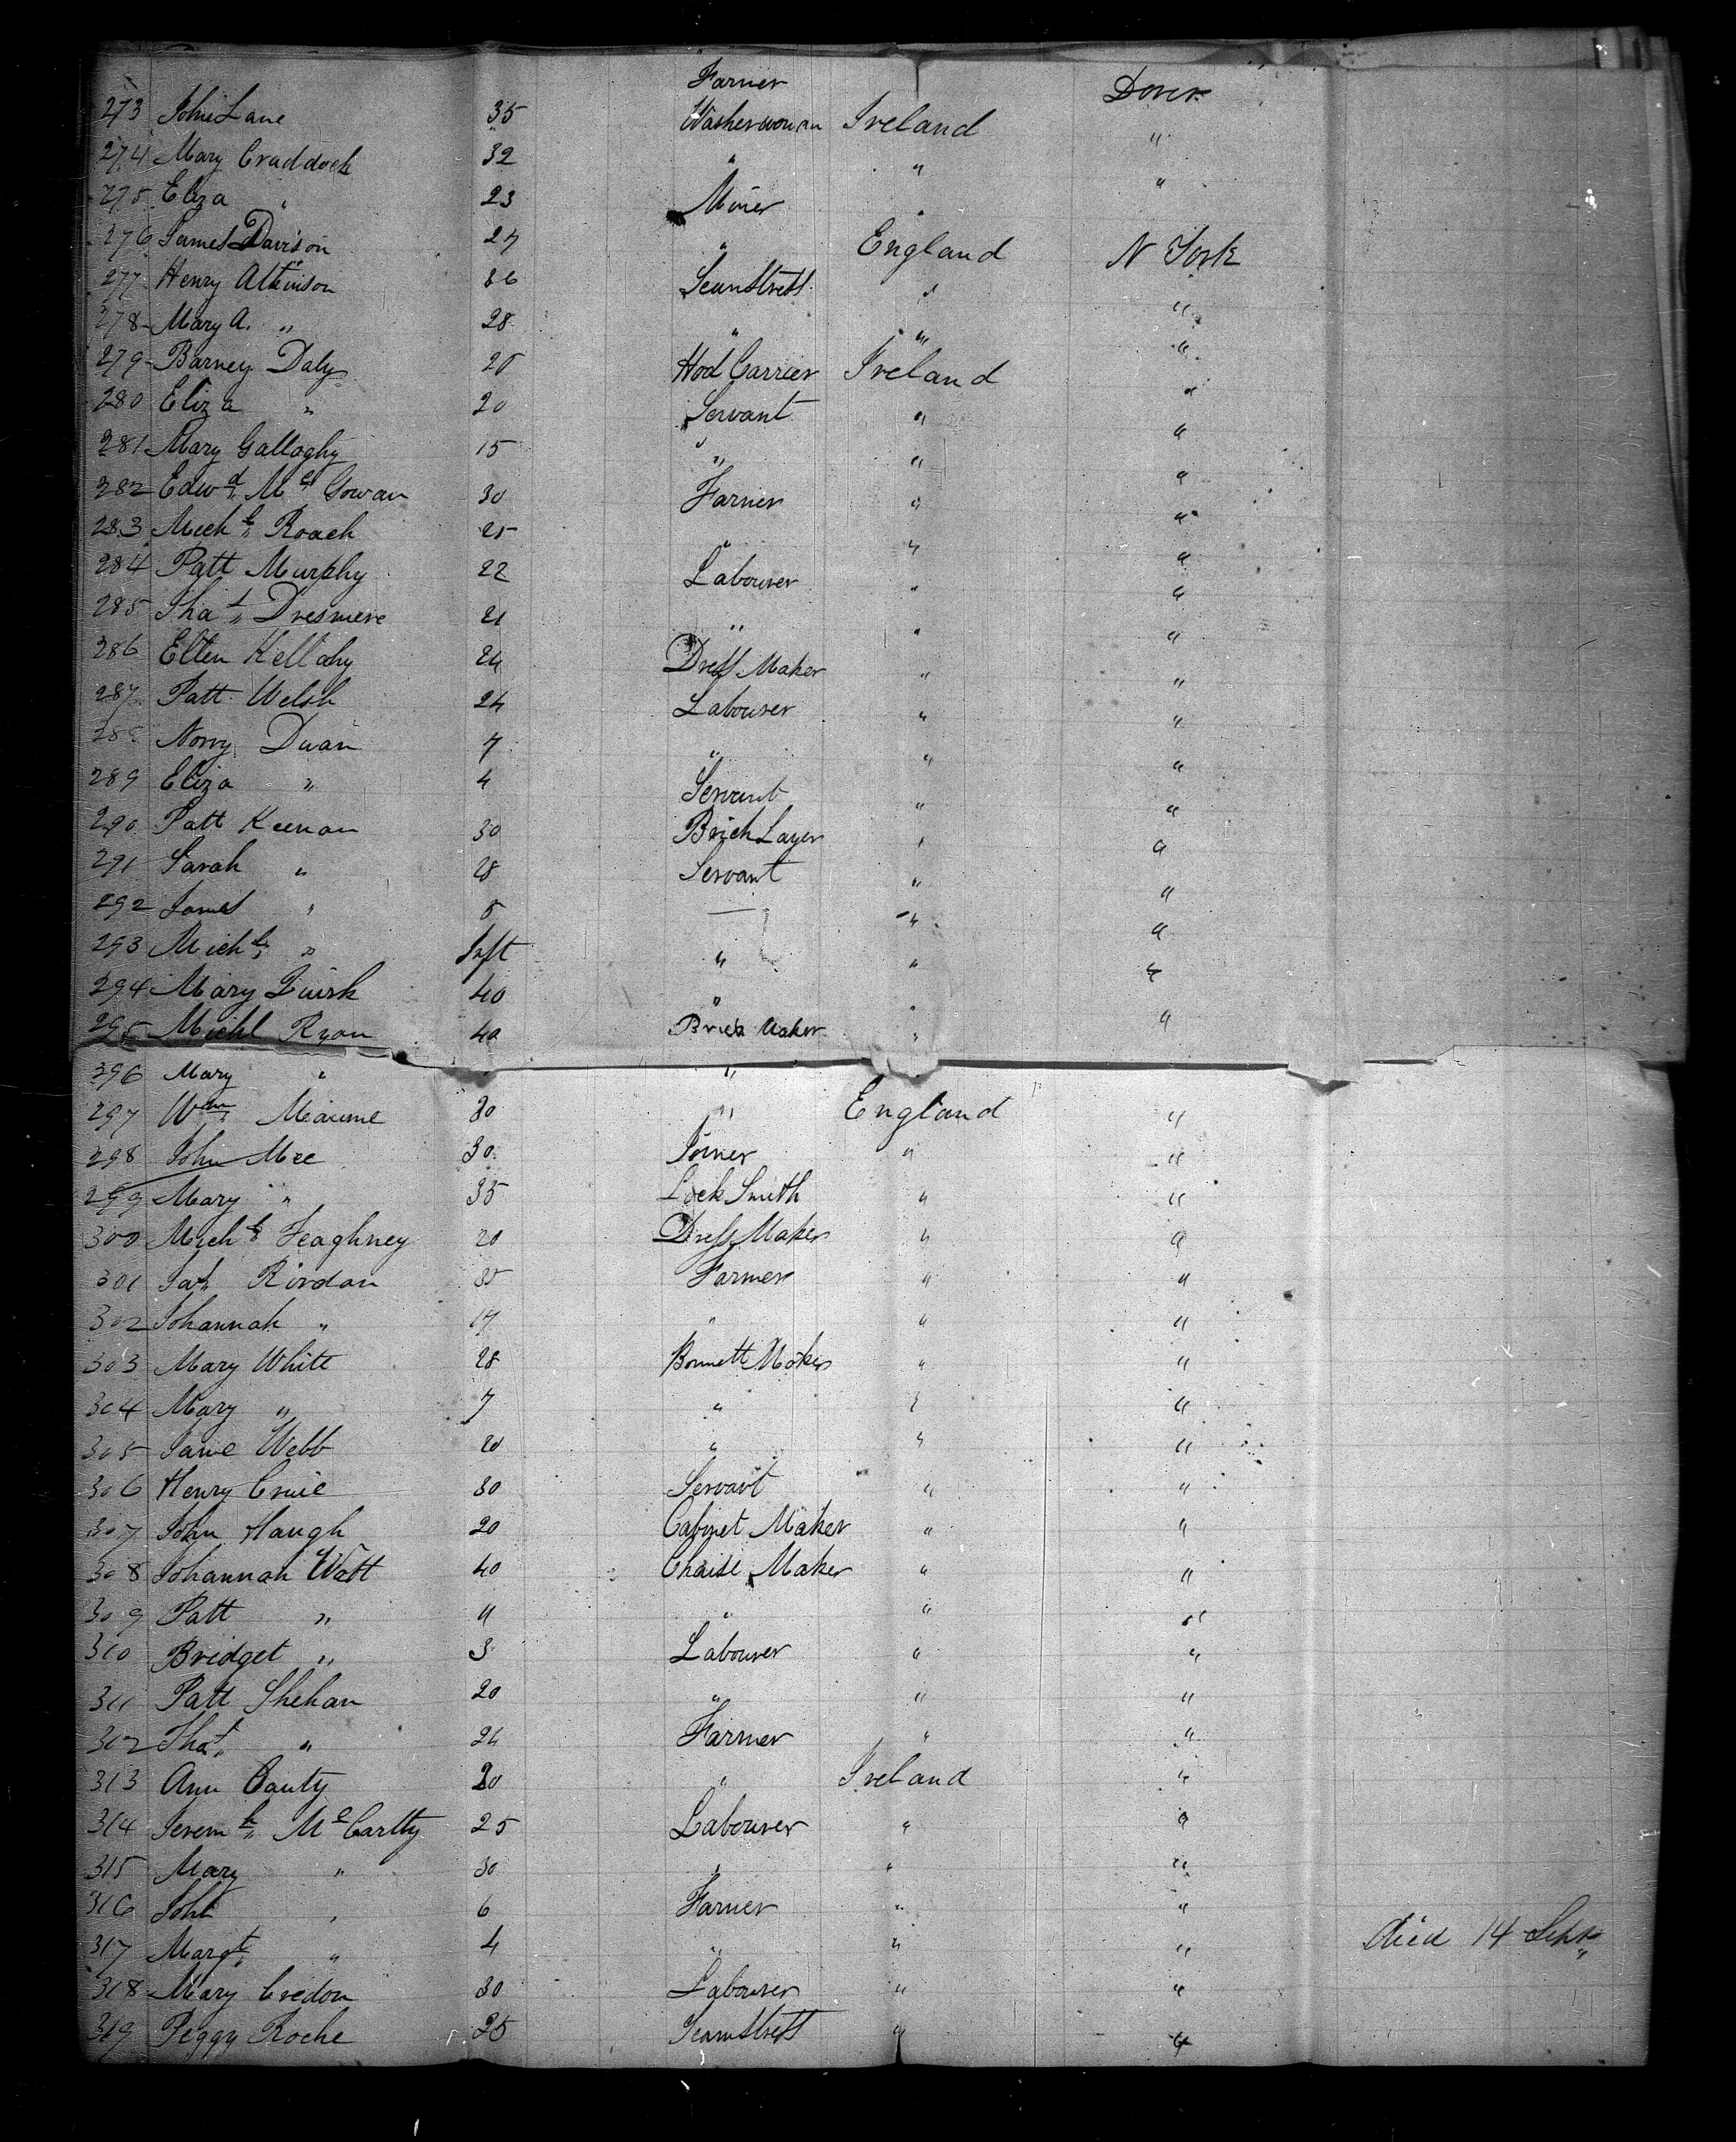 Farmer Dover
273 John Lane 35 Washerwoman Ireland "
274 Mary Craddock 32 " " "
275 Eliza " 23 Miner "
276 James Davison 27 " England N York
277 Henry Atkinson 36 Seamstress " "
278 Mary A. " 28 " " "
279 Barney Daly 25 Hod Carrier Ireland "
280 Eliza " 20 Servant " "
281 Mary Gallaghy 15 " " "
282 Edwd Mc Gowan 30 Farmer " "
283 Michl Roach 25 " " "
284 Patt Murphy 22 Labourer " "
285 Thos 21 " " "
286 Ellen Kellahy 24 Dress Maker " "
287 Patt Welsh 24 Labourer " "
288 Norry Dwan 7 " " "
289 Eliza " 4 Servant " "
290 Patt Keenan 30 Brick Layer " "
291 Sarah " 28 Servant " "
292 James " 5 — " "
293 Michl " Inft " " "
294 Mary Quirk 40 " " "
295 Michl Ryan 40 Brick Maker "
296 Mary " "
297 Wm 20 " England "
298 John Mee 30 Joiner " "
299 Mary " 35 Lock Smith " "
300 Michl Feaghney 20 Dress Maker " "
301 Jas Rirdan 35 Farmer " "
302 Johannah " 17 " " "
303 Mary White 28 Bonnett Maker " "
304 Mary " 7 " " "
305 Jane Webb 20 " " "
306 Henry 30 Servant " "
307 John Haugh 20 Cabinet Maker " "
308 Johannah Watt 40 Chaise Maker " "
309 Patt " 4 " " "
310 Bridget " 3 Labourer " "
311 Patt Shehan 20 " " "
312 Thos " 24 Farmer " "
313 Ann Canty 20 " Ireland "
314 Jeremh Mc Cartty 25 Labourer " "
315 Mary " 30 " " "
316 John " 6 Farmer " "
317 Margt " 4 " " " Died 14 Sept
318 Mary Credon 30 Labourer " "
319 Peggy Roche 25 Seamstress " "